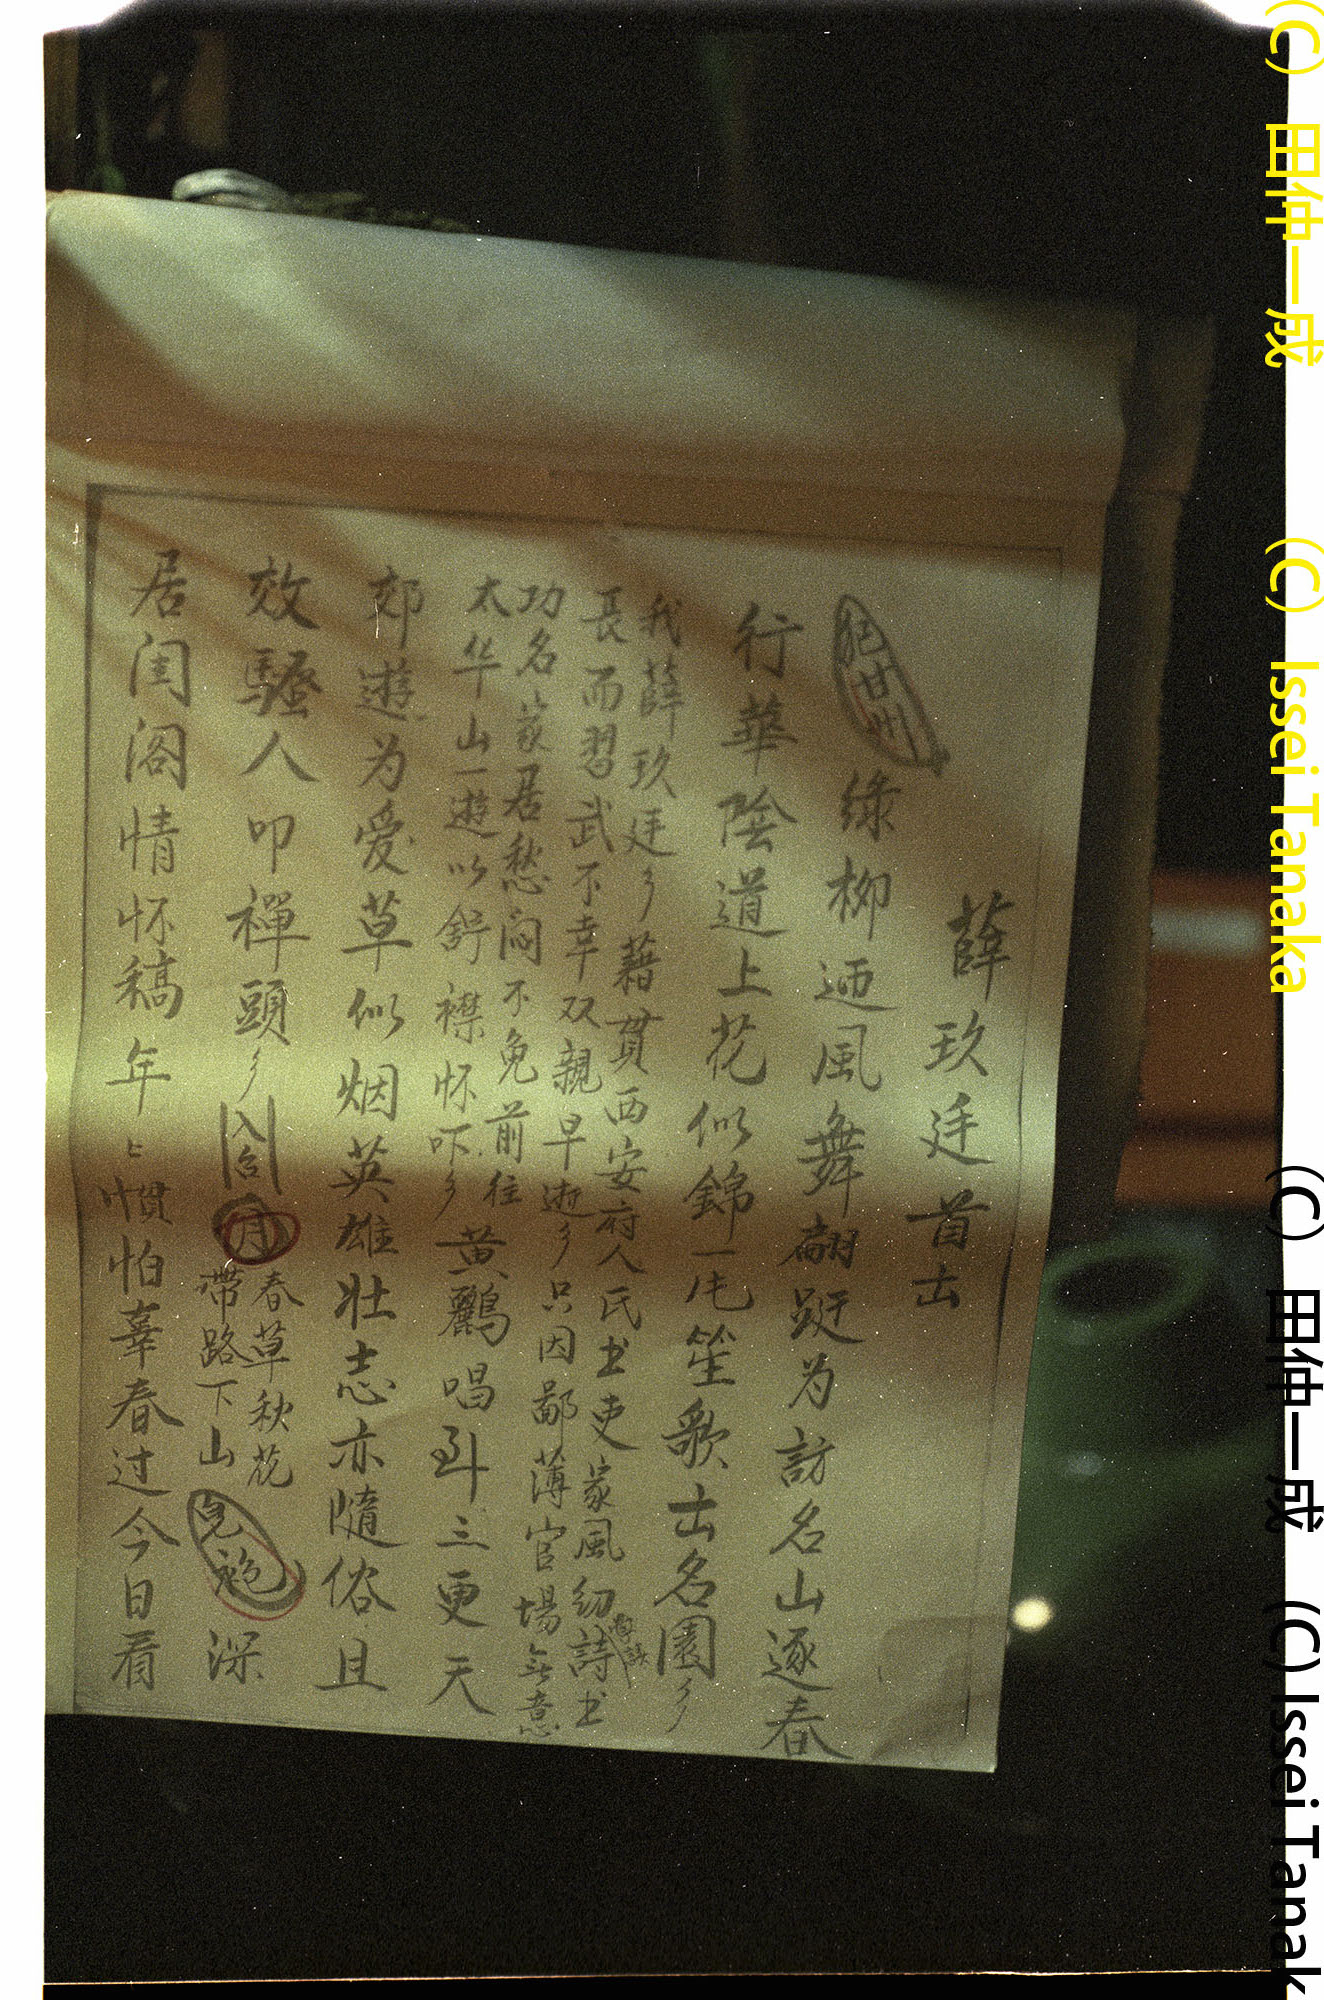 薛玖廷首出
綠柳迊風舞翩跹为訪名山逐春
行華陰道上花似錦一庉笙歌出名園
我薛玖廷藉貫西安府人氏书吏家風幼詩书
長而習武不幸双親早逝只因鄙薄官場無意
功名家居愁闷不免前往
太华山一遊以舒襟怀吓黄鸝唱到三更天
郊遊为爱草似烟英雄壮志亦隨俗且
效騷人叩禪頭
入台
月
春草秋花
帶路下山
深
居闺阁情怀稿年
慣怕辜春过今日看
(C) 田仲一成 (C) Issei Tanaka (C) 田仲一成 (C) Issei Tanak